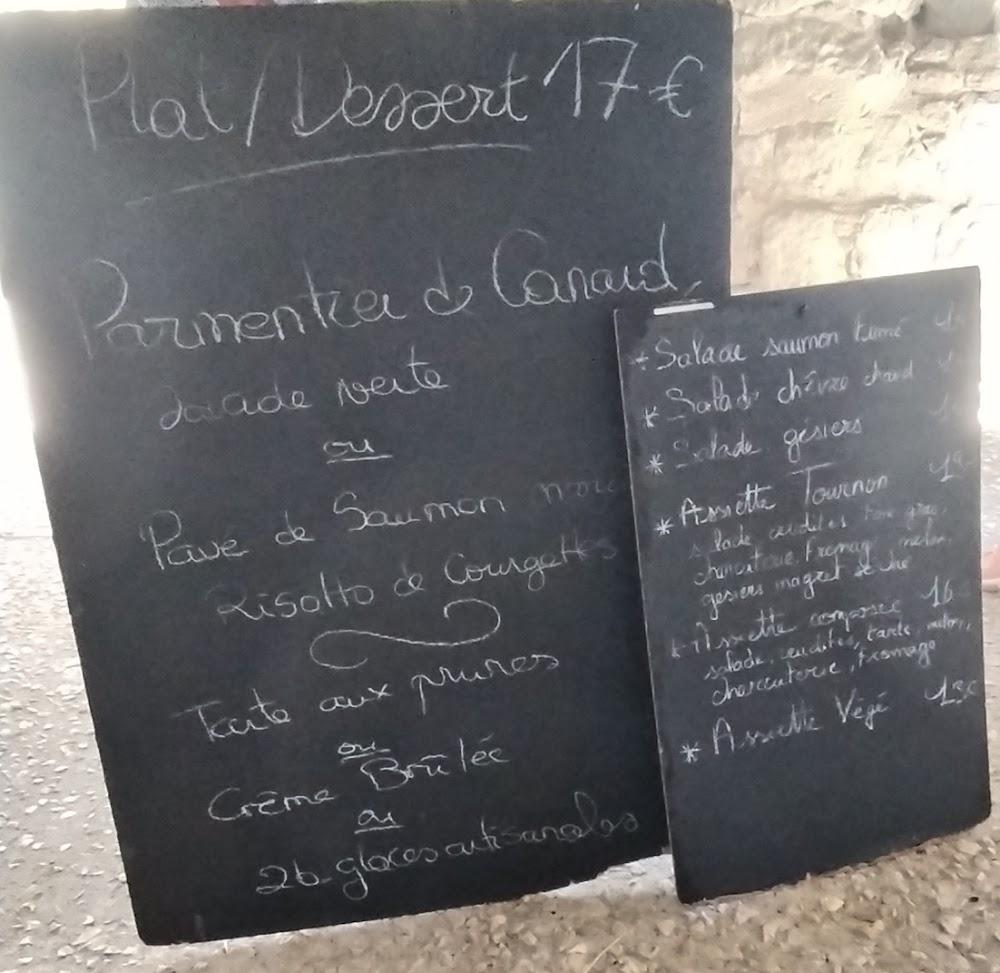 Plat/Dessert 17€
Parmentier de Canard,
salade verte
ou
Pavé de Saumon
Risotto de Courgettes
Tarte aux prunes
ou
Crème Brûlée
ou
2b glaces artisanales
* Salade saumon fumé
* Salade chèvre chaud
* Salade gésiers
* Assiette Tournon
salade, crudités, foie gras,
charcuterie, fromage, melon,
gésiers magret séché
* Assiette composée 16
salade, crudités, tarte, melon,
charcuterie, fromage
* Assiette Végé 13€